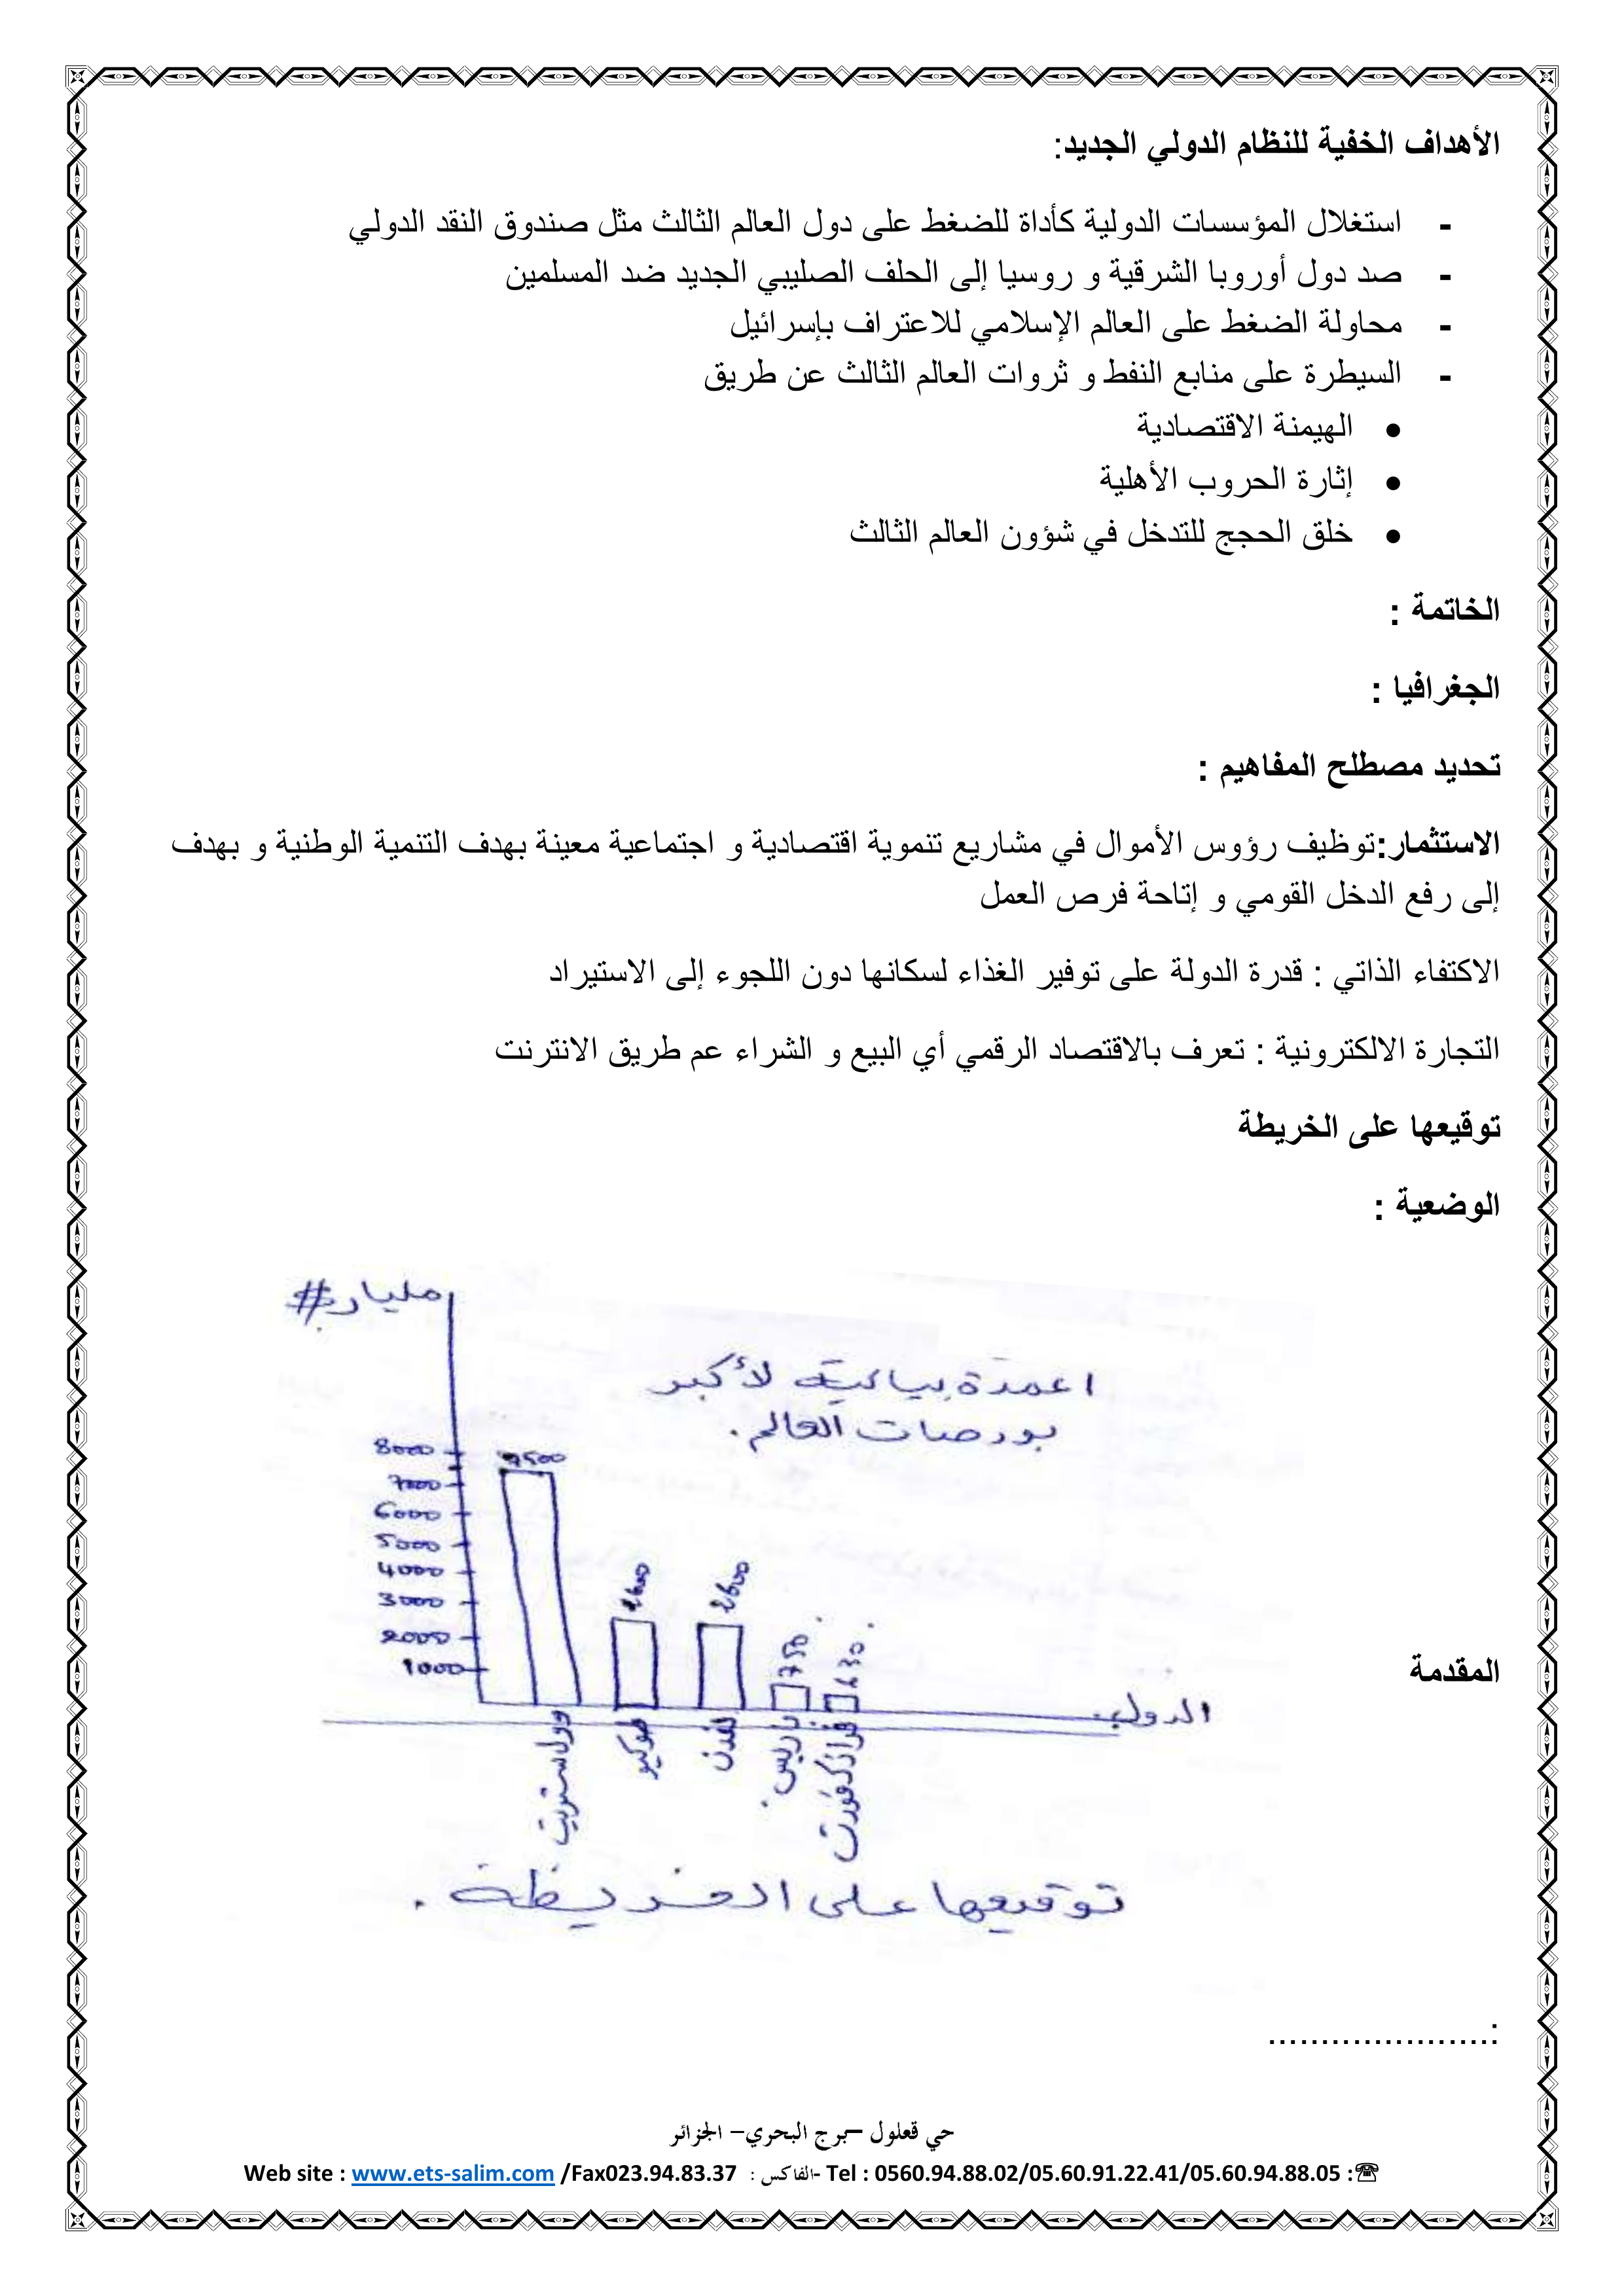 الأهداف الخفية للنظام الدولي الجديد:
- استغلال المؤسسات الدولية كأداة للضغط على دول العالم الثالث مثل صندوق النقد الدولي
- صد دول أوروبا الشرقية و روسيا إلى الحلف الصليبي الجديد ضد المسلمين
- محاولة الضغط على العالم الإسلامي للاعتراف بإسرائيل
- السيطرة على منابع النفط و ثروات العالم الثالث عن طريق
• الهيمنة الاقتصادية
• إثارة الحروب الأهلية
• خلق الحجج للتدخل في شؤون العالم الثالث
الخاتمة :
الجغرافيا :
تحديد مصطلح المفاهيم :
الاستثمار:توظيف رؤوس الأموال في مشاريع تنموية اقتصادية و اجتماعية معينة بهدف التنمية الوطنية و بهدف
إلى رفع الدخل القومي و إتاحة فرص العمل
الاكتفاء الذاتي : قدرة الدولة على توفير الغذاء لسكانها دون اللجوء إلى الاستيراد
التجارة الالكترونية : تعرف بالاقتصاد الرقمي أي البيع و الشراء عم طريق الانترنت
توقيعها على الخريطة
الوضعية :
مليار#
اعمدة بيانية لأكبر
بورصات العالم.
8000
7500
7000
6000
5000
4000
3000
2000
1000
2600
750
630
الدول
وول ستريت
طوكيو
لندن
باريس
فرانكفورت
المقدمة
توقيعها على الخريطة.
:.....................
حي قعلول –برج البحري– الجزائر
Web site : www.ets-salim.com /Fax023.94.83.37 : الفاكس- Tel : 0560.94.88.02/05.60.91.22.41/05.60.94.88.05 :☎